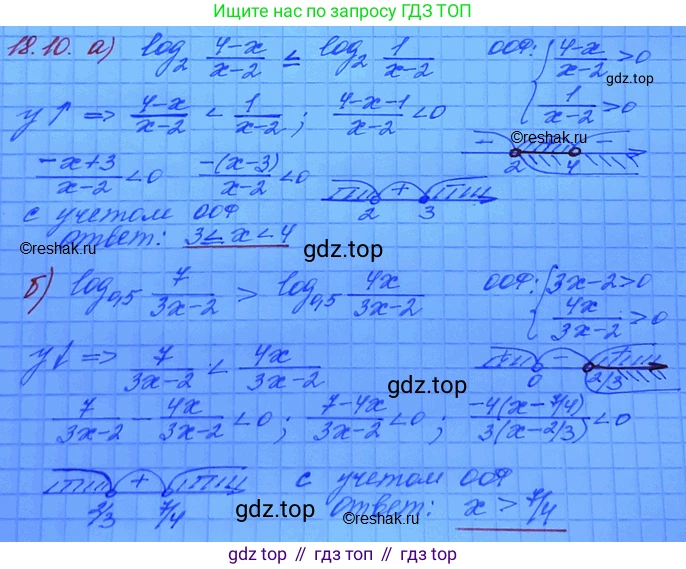 Ищите нас по запросу ГДЗ ТОП
18.10. а) log₂ (4-x)/(x-2) ≤ log₂ 1/(x-2) ООФ: { (4-x)/(x-2) > 0
1/(x-2) > 0
gdz.top
y↑ => (4-x)/(x-2) < 1/(x-2) ; (4-x-1)/(x-2) < 0
©reshak.ru
- -
2 4
(-x+3)/(x-2) < 0 -(x-3)/(x-2) < 0
+
2 3
с учетом ООФ
©reshak.ru
ответ: 3 ≤ x < 4
gdz.top
б) log₀,₅ 7/(3x-2) > log₀,₅ 4x/(3x-2) ООФ: { 3x-2>0
4x/(3x-2) > 0
y↓ => 7/(3x-2) < 4x/(3x-2)
+ -
0 2/3
gdz.top
7/(3x-2) - 4x/(3x-2) < 0 ; (7-4x)/(3x-2) < 0 ; -4(x-7/4)/3(x-2/3) < 0
+
2/3 7/4
с учетом ООФ
gdz.top
ответ: x > 7/4
gdz.top // гдз топ // гдз.top